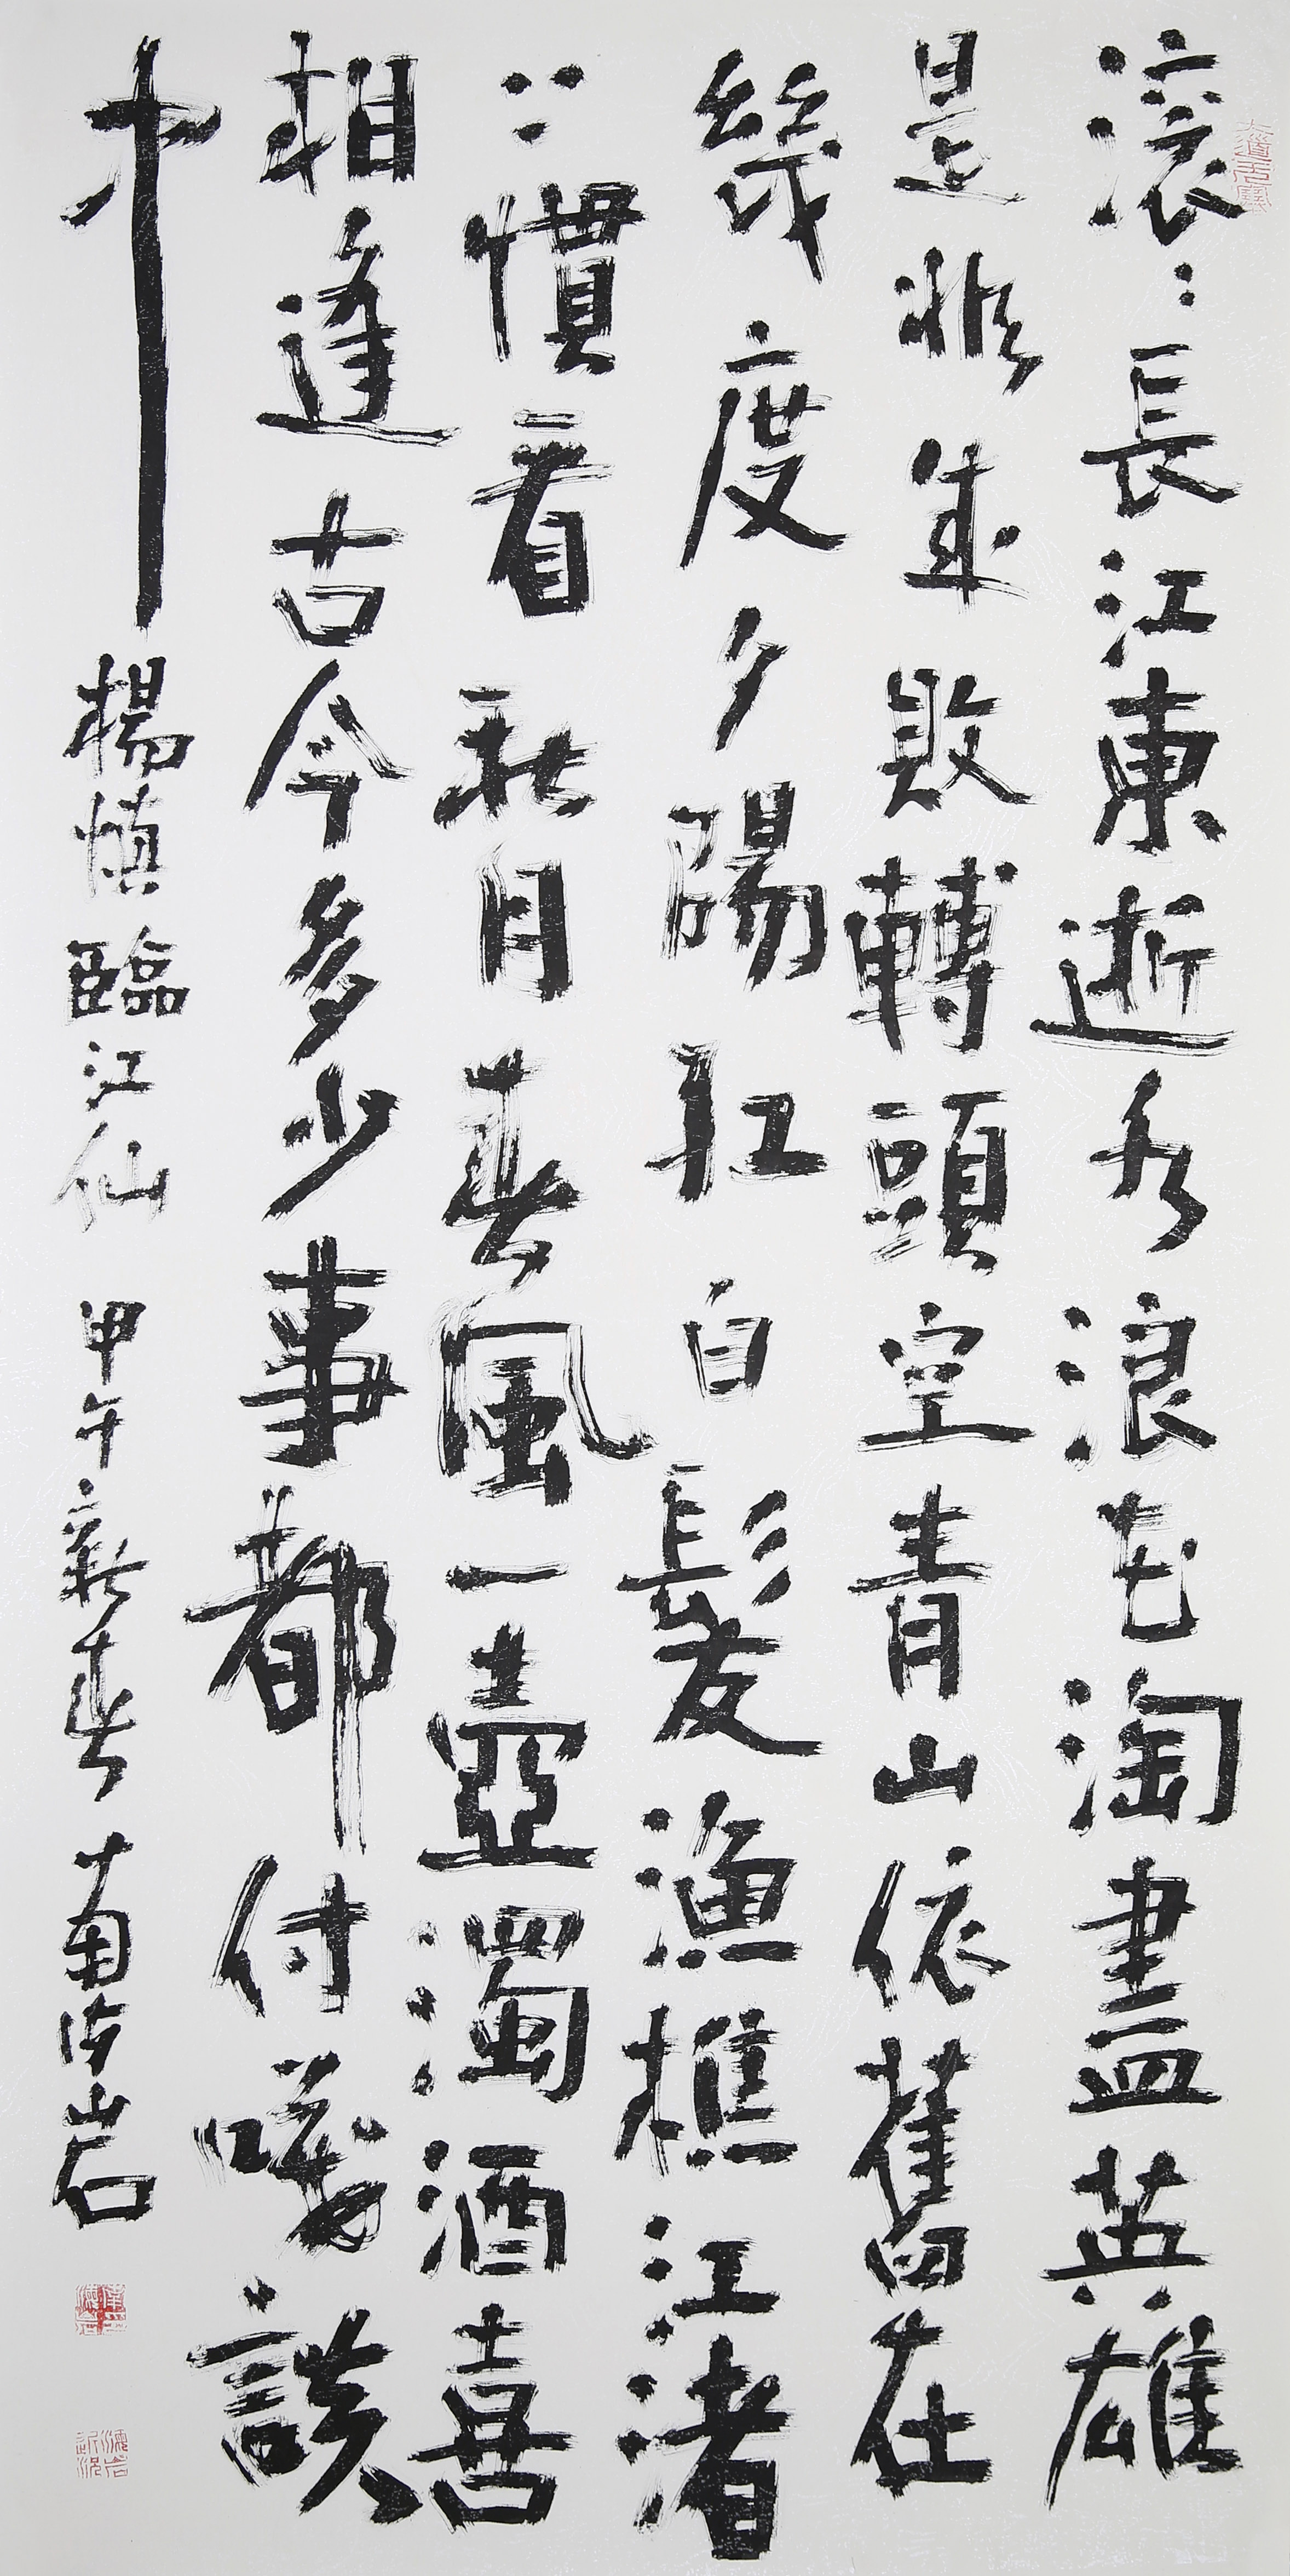 滚滚長江東逝水浪花淘盡英雄
是非成敗轉頭空青山依舊在
幾度夕陽紅白髮漁樵江渚
上慣看秋月春風一壺濁酒喜
相逢古今多少事都付咲談
中 楊慎臨江仙 甲午新春 南海岩